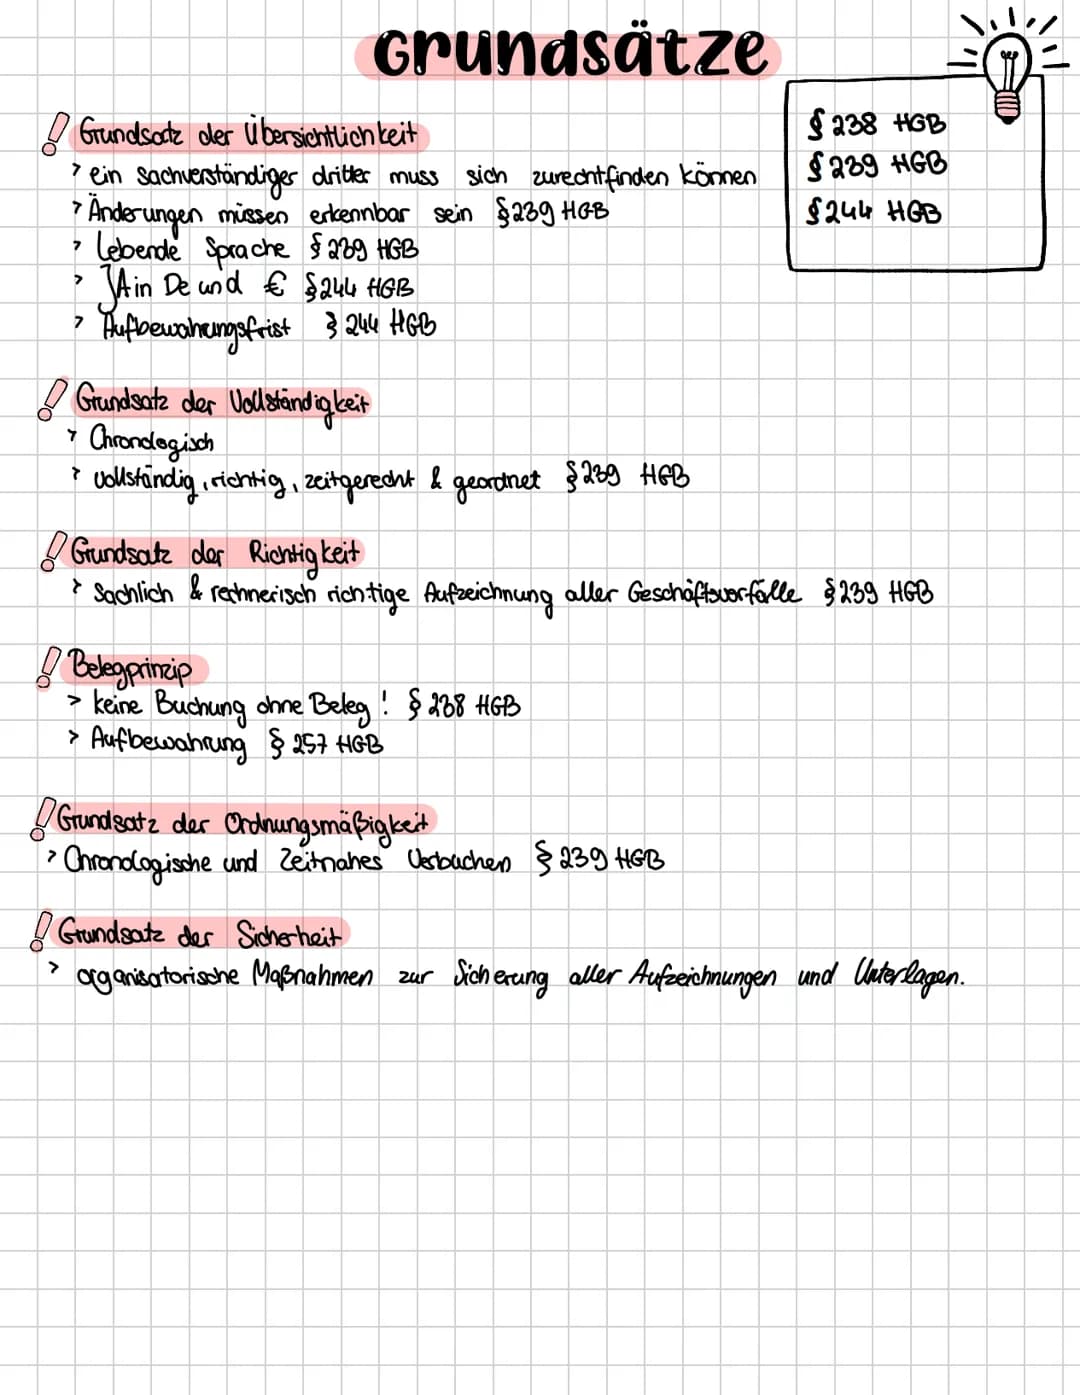 Grundsätze
§ 238 HGB
§ 239 HGB
§ 244 HGB
! Grundsatz der Übersichtlichkeit
> ein Sachverständiger dritter muss sich zurechtfinden können
> Änderungen müssen erkennbar sein § 239 HGB
> Lebende Sprache § 239 HGB
> JA in De und € § 244 HGB
> Aufbewahrungsfrist § 244 HGB
! Grundsatz der Vollständigkeit
> Chronologisch
> vollständig, richtig, zeitgerecht & geordnet § 239 HGB
! Grundsatz der Richtigkeit
> Sachlich & rechnerisch richtige Aufzeichnung aller Geschäftsvorfälle § 239 HGB
! Belegprinzip
> keine Buchung ohne Beleg! § 238 HGB
> Aufbewahrung § 257 HGB
! Grundsatz der Ordnungsmäßigkeit
> Chronologische und Zeitnahes Verbuchen § 239 HGB
! Grundsatz der Sicherheit
> organisatorische Maßnahmen zur Sicherung aller Aufzeichnungen und Unterlagen.